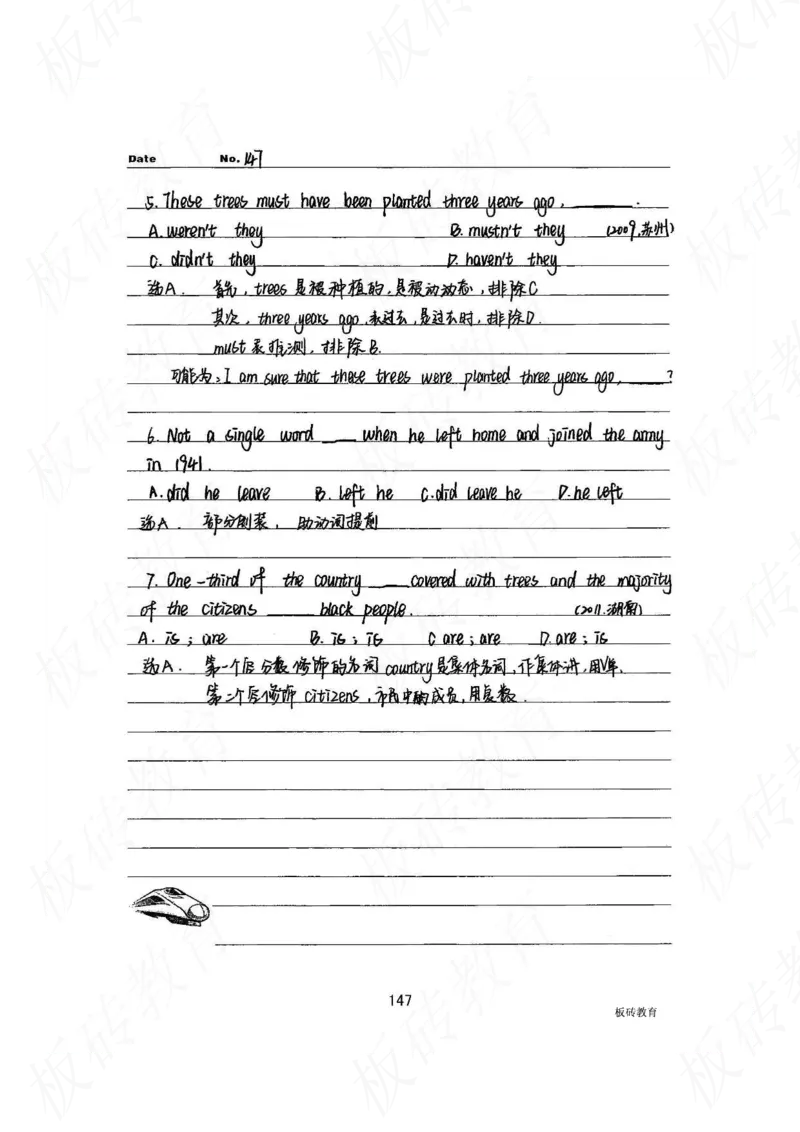 Date No. 147
5. These trees must have been planted three years ago, ______.
A. weren't they B. mustn't they (2009.苏州)
C. didn't they D. haven't they
选A. 首先, trees 是被种植的,是被动动态,排除C
其次, three years ago, 表过去,是过去时,排除D.
must 表推测,排除B.
可能为: I am sure that these trees were planted three years ago, ____?
6. Not a single word ____ when he left home and joined the army
in 1941.
A. did he leave B. left he C. did leave he D. he left
选A. 部分倒装, 助动词提前
7. One-third of the country ____ covered with trees and the majority
of the citizens ____ black people. (2011.湖南)
A. is; are B. is; is C are; are D. are; is
选A. 第一个后分数修饰的名词 country是集体名词,作集体讲,用V单.
第二个后修饰 citizens, 市民中的成员,用复数.
147
板砖教育